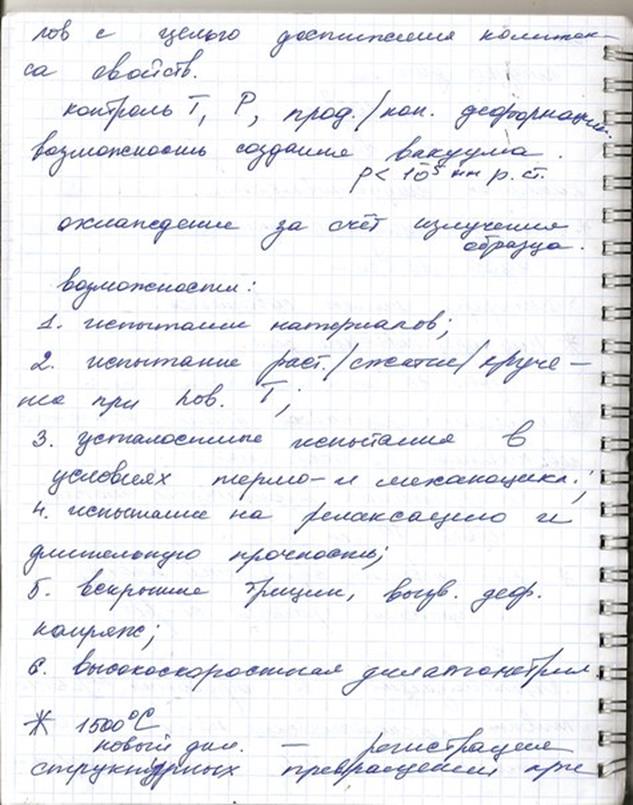 лов с целью достижения комплек-
са свойств.
контроль T, P, прод./поп. деформации.
возможность создания вакуума.
p < 10⁵ мм р. ст.
охлаждение за счёт излучения
образца.
возможности:
1. испытание материалов;
2. испытание раст./сжатие/круче-
ние при пов. T;
3. усталостные испытания в
условиях термо- и механоцикл.;
4. испытание на релаксацию и
длительную прочность;
5. вскрытие трещин, выяв. деф.
напряж;
6. высокоскоростная дилатометрия
Ж 1500°C
новый дил. — регистрация
структурных превращений при